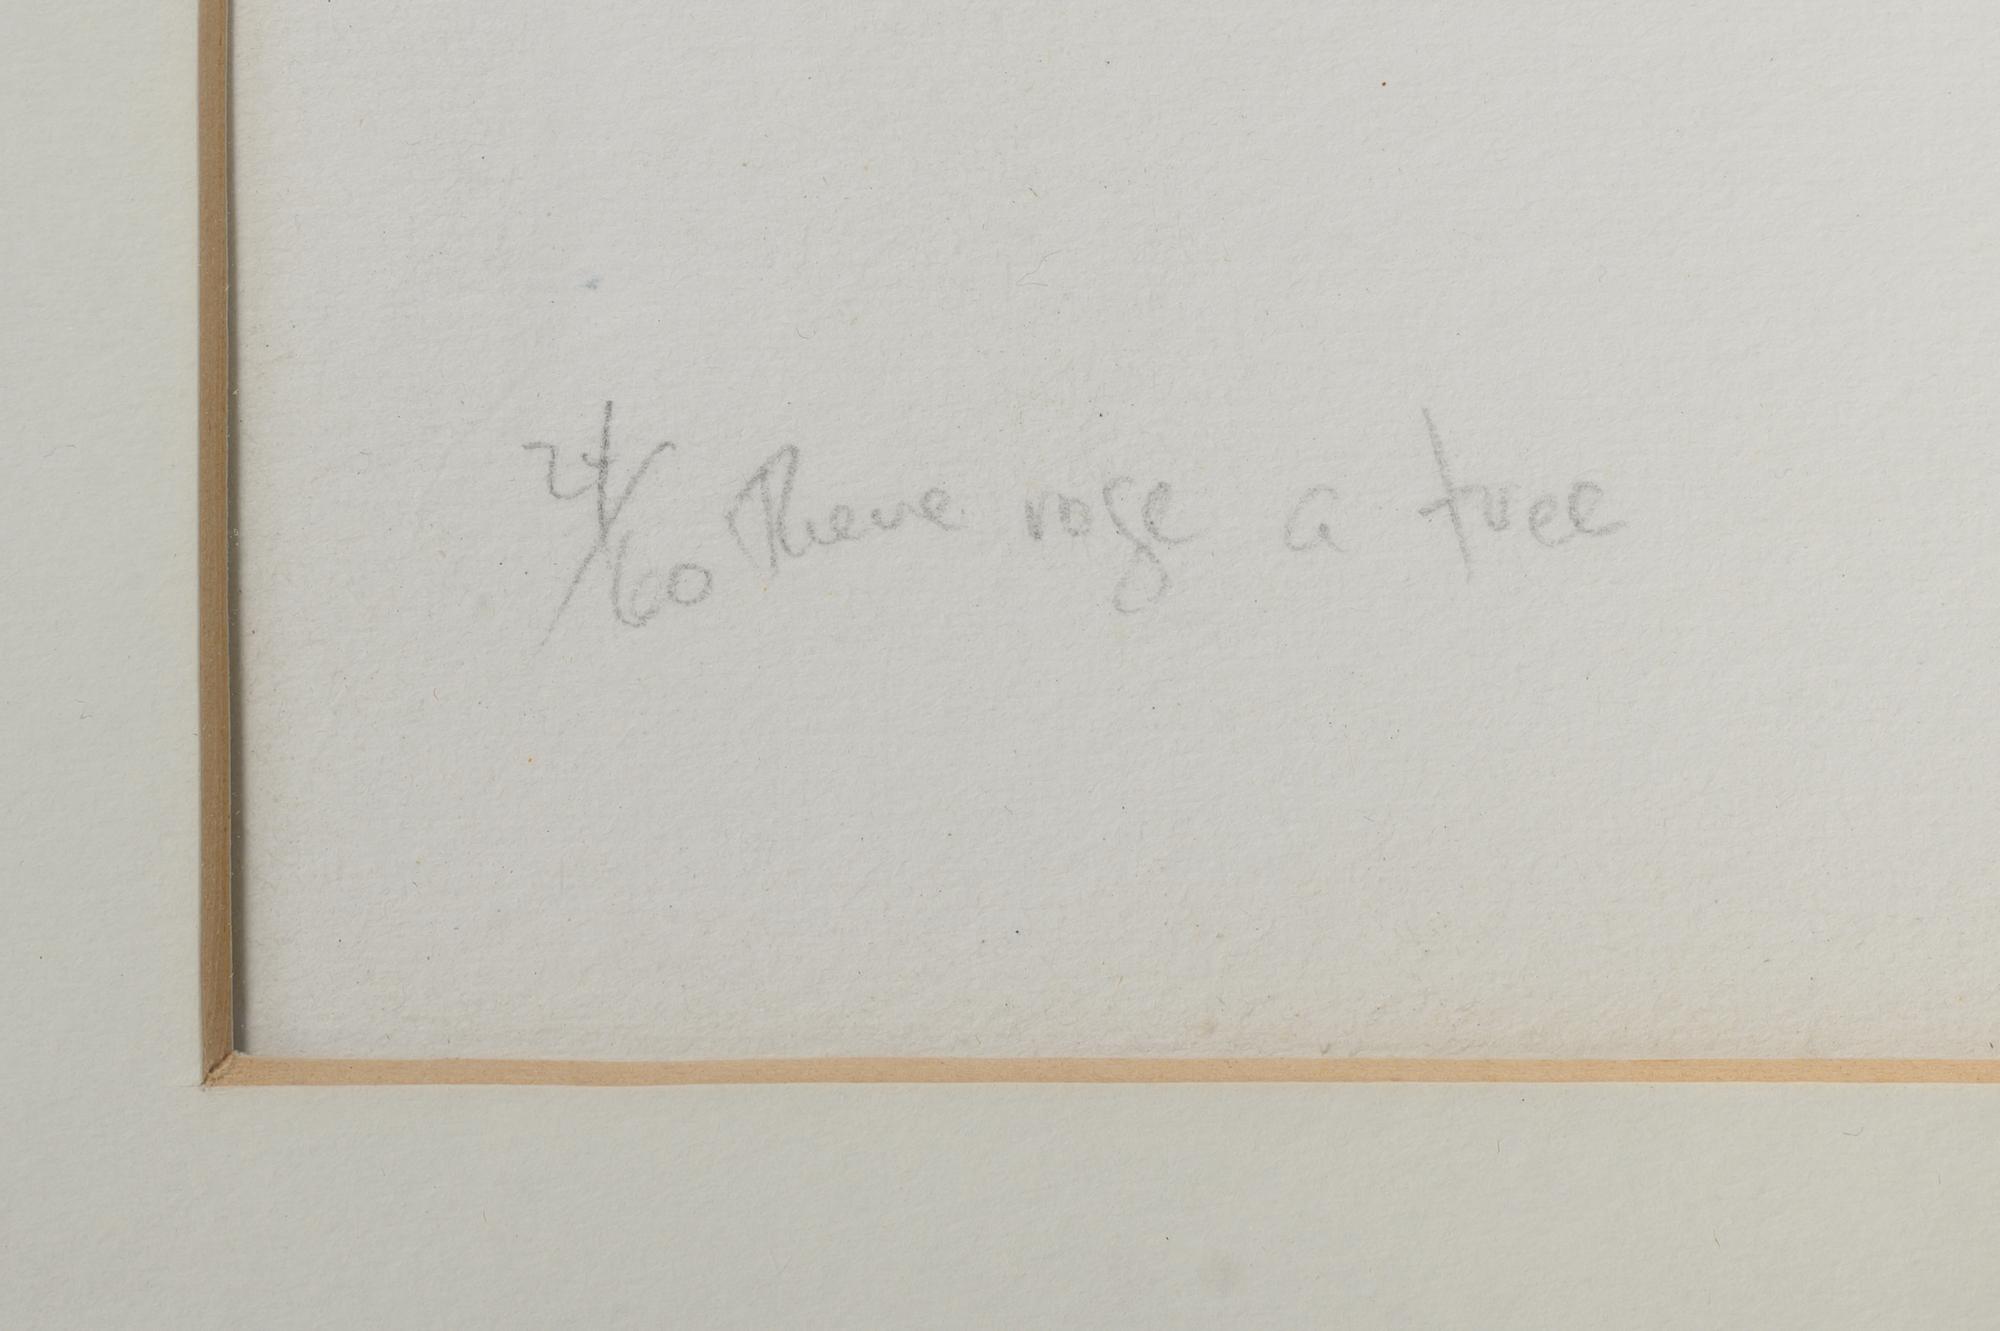 24/60 There rose a tree